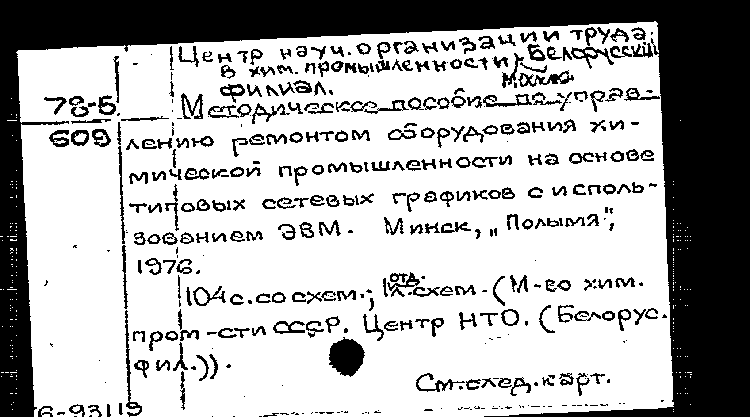 Центр науч. организации труда
в хим. промышленности, Белорусский
филиал.
78-5
Методическое пособие по управ-
609
лению ремонтом оборудования хи-
мической промышленности на основе
типовых сетевых графиков с исполь-
зованием ЭВМ. Минск, „Полымя",
1976.
104 с. со схем.; 1 отд. л. схем. (М-во хим.
пром-сти СССР. Центр НТО. (Белорус.
фил.)).
См. след. карт.
76-93119